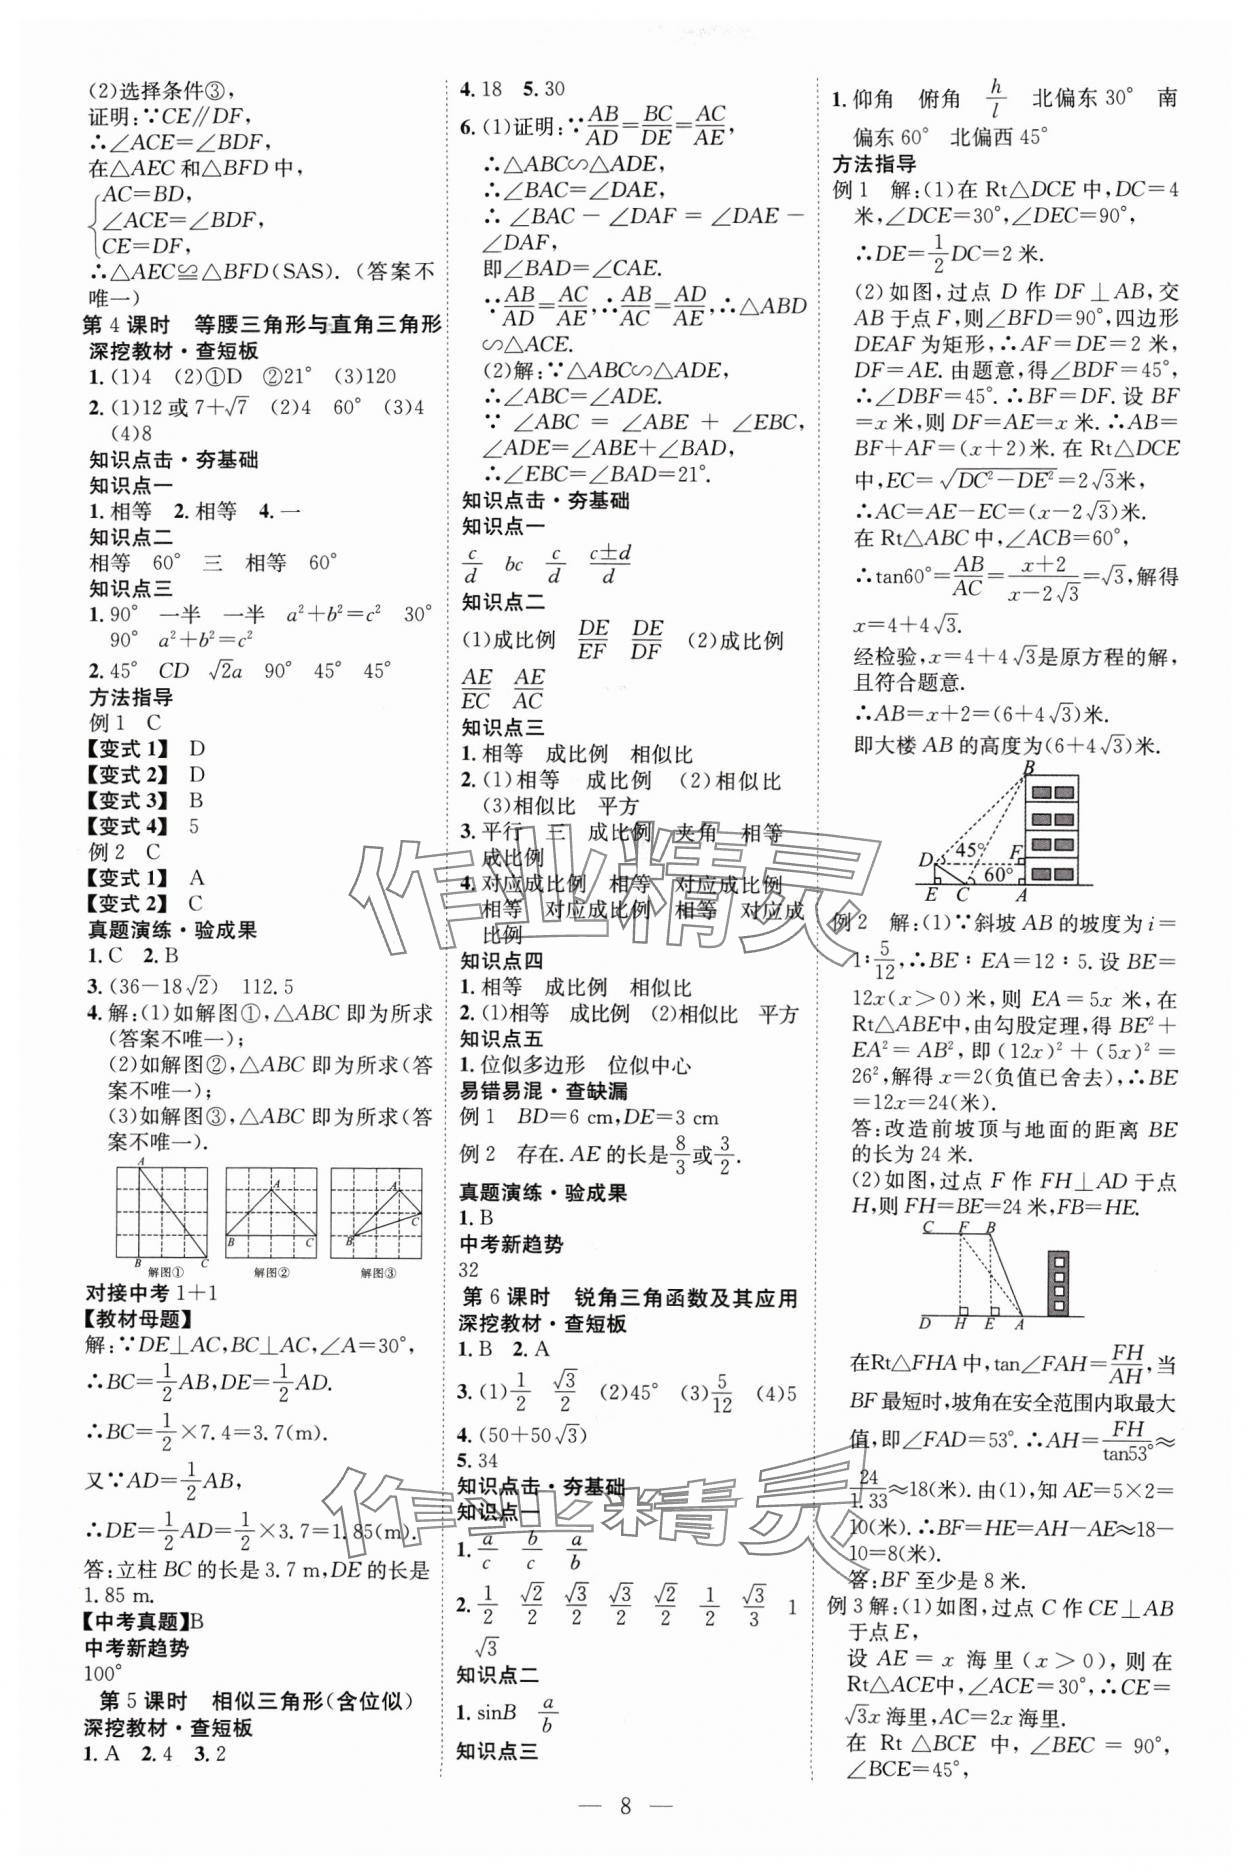 (2)选择条件③,
证明:∵CE∥DF,
∴∠ACE=∠BDF,
在△AEC和△BFD中,
AC=BD,
∠ACE=∠BDF,
CE=DF,
∴△AEC≌△BFD(SAS).(答案不
唯一)
第4课时 等腰三角形与直角三角形
深挖教材·查短板
1.(1)4 (2)①D ②21° (3)120
2.(1)12或7+√7 (2)4 60° (3)4
(4)8
知识点击·夯基础
知识点一
1.相等 2.相等 4.一
知识点二
相等 60° 三 相等 60°
知识点三
1.90° 一半 一半 a²+b²=c² 30°
90° a²+b²=c²
2.45° CD √2a 90° 45° 45°
方法指导
例1 C
【变式1】 D
【变式2】 D
【变式3】 B
【变式4】 5
例2 C
【变式1】 A
【变式2】 C
真题演练·验成果
1.C 2.B
3.(36-18√2) 112.5
4.解:(1)如解图①,△ABC即为所求
(答案不唯一);
(2)如解图②,△ABC即为所求(答
案不唯一);
(3)如解图③,△ABC即为所求(答
案不唯一).
A A A
B C B C B C
解图① 解图② 解图③
对接中考1+1
【教材母题】
解:∵DE⊥AC,BC⊥AC,∠A=30°,
∴BC=1/2AB,DE=1/2AD.
∴BC=1/2×7.4=3.7(m).
又∵AD=1/2AB,
∴DE=1/2AD=1/2×3.7=1.85(m).
答:立柱BC的长是3.7 m,DE的长是
1.85 m.
【中考真题】B
中考新趋势
100°
第5课时 相似三角形(含位似)
深挖教材·查短板
1.A 2.4 3.2
4.18 5.30
6.(1)证明:∵AB/AD=BC/DE=AC/AE,
∴△ABC∽△ADE,
∴∠BAC=∠DAE,
∴∠BAC-∠DAF=∠DAE-
∠DAF,
即∠BAD=∠CAE.
∵AB/AD=AC/AE,∴AB/AC=AD/AE,∴△ABD
∽△ACE.
(2)解:∵△ABC∽△ADE,
∴∠ABC=∠ADE.
∵∠ABC=∠ABE+∠EBC,
∠ADE=∠ABE+∠BAD,
∴∠EBC=∠BAD=21°.
知识点击·夯基础
知识点一
c/d bc c/d (c±d)/d
知识点二
(1)成比例 DE/EF DE/DF (2)成比例
AE/EC AE/AC
知识点三
1.相等 成比例 相似比
2.(1)相等 成比例 (2)相似比
(3)相似比 平方
3.平行 三 成比例 夹角 相等
成比例
4.对应成比例 相等 对应成比例
相等 对应成比例 相等 对应成
比例
知识点四
1.相等 成比例 相似比
2.(1)相等 成比例 (2)相似比 平方
知识点五
1.位似多边形 位似中心
易错易混·查缺漏
例1 BD=6 cm,DE=3 cm
例2 存在.AE的长是8/3或3/2.
真题演练·验成果
1.B
中考新趋势
32
第6课时 锐角三角函数及其应用
深挖教材·查短板
1.B 2.A
3.(1)1/2 √3/2 (2)45° (3)5/12 (4)5
4.(50+50√3)
5.34
知识点击·夯基础
知识点一
1.a/c b/c a/b
2.1/2 √2/2 √3/2 √3/2 √2/2 1/2 √3/3 1
√3
知识点二
1.sinB a/b
知识点三
1.仰角 俯角 h/l 北偏东30° 南
偏东60° 北偏西45°
方法指导
例1 解:(1)在Rt△DCE中,DC=4
米,∠DCE=30°,∠DEC=90°,
∴DE=1/2DC=2米.
(2)如图,过点D作DF⊥AB,交
AB于点F,则∠BFD=90°,四边形
DEAF为矩形,∴AF=DE=2米,
DF=AE.由题意,得∠BDF=45°,
∴∠DBF=45°.∴BF=DF.设BF
=x米,则DF=AE=x米.∴AB=
BF+AF=(x+2)米.在Rt△DCE
中,EC=√(DC²-DE²)=2√3米,
∴AC=AE-EC=(x-2√3)米.
在Rt△ABC中,∠ACB=60°,
∴tan60°=AB/AC=(x+2)/(x-2√3)=√3,解得
x=4+4√3.
经检验,x=4+4√3是原方程的解,
且符合题意.
∴AB=x+2=(6+4√3)米.
即大楼AB的高度为(6+4√3)米.
B
D 45° F
60°
E C A
例2 解:(1)∵斜坡AB的坡度为i=
1:5/12,∴BE:EA=12:5.设BE=
12x(x>0)米,则EA=5x米,在
Rt△ABE中,由勾股定理,得BE²+
EA²=AB²,即(12x)²+(5x)²=
26²,解得x=2(负值已舍去),∴BE
=12x=24(米).
答:改造前坡顶与地面的距离BE
的长为24米.
(2)如图,过点F作FH⊥AD于点
H,则FH=BE=24米,FB=HE.
C F B
D H E A
在Rt△FHA中,tan∠FAH=FH/AH,当
BF最短时,坡角在安全范围内取最大
值,即∠FAD=53°.∴AH=FH/tan53°≈
24/1.33≈18(米).由(1),知AE=5×2=
10(米).∴BF=HE=AH-AE≈18-
10=8(米).
答:BF至少是8米.
例3解:(1)如图,过点C作CE⊥AB
于点E,
设AE=x海里(x>0),则在
Rt△ACE中,∠ACE=30°,∴CE=
√3x海里,AC=2x海里.
在Rt△BCE中,∠BEC=90°,
∠BCE=45°,
作业精灵
作业精灵
— 8 —